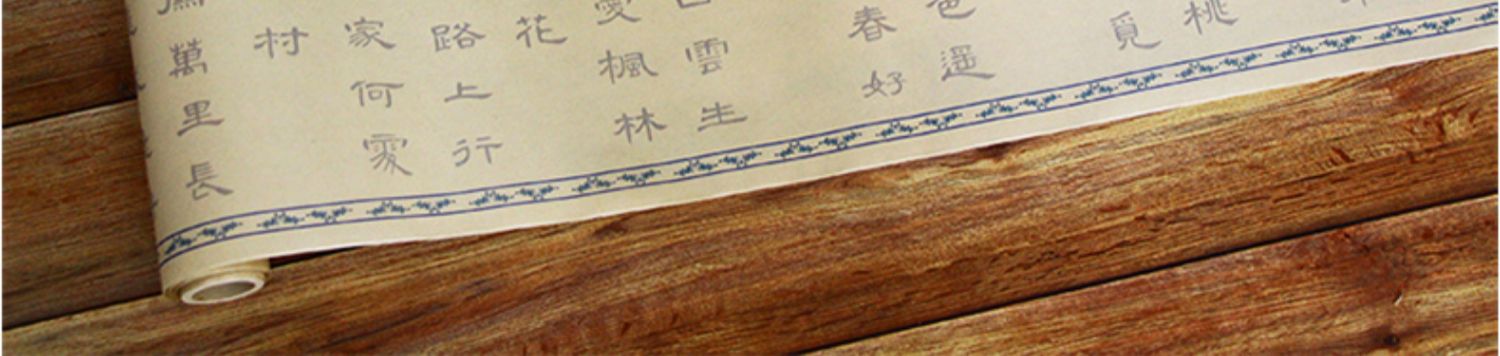 桃
覓
色遥
春好
雲生
愛楓林
花
路上行
家何處
村
萬里長